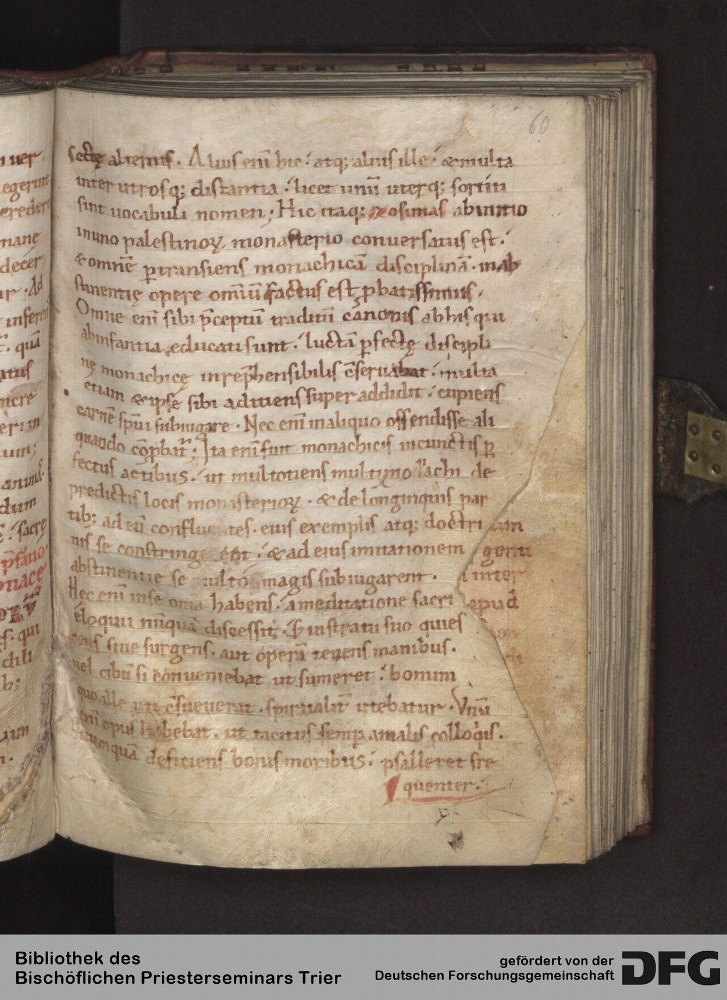 60
sectę alterius. Alius enī hic. atq; alius ille. & multa
inter utrosq; distantia. licet unū uterq; sortiti
sint uocabuli nomen; Hic itaq; zosimas ab initio
in uno palestinoꝝ monasterio conuersatus est.
& omnē ptransiens monachicā disciplinā. in ab
stinentię opere omiū factus est pbatissimus.
Omne enī sibi p̄ceptum traditū canonis ab his qui
ab infantia educati sunt. luctā pfectę discipli
nę monachicę inrep̄hensibilis c̄seruabat. multa
etiam & ipse sibi aditiens superaddidit. cupiens
carnē spui subiugare. Nec enī in aliquo offendisse ali
quando cōpbat. Ita enī fuit monachicis in cunctis p
fectus actibus. ut multotiens multi monachi de
predictis locis monasterioꝝ. & de longinquis par
tib; ad eū confluentes. eius exemplis atq; doctri
nis se constringerent. & ad eius imitationem
abstinentie se multo magis subiugarent.
Hec enī in se oīa habens. a meditatione sacri
eloquii nūquā discessit. in stratu suo quies
cens siue surgens. aut operā tenens manibus.
uel cibū si conueniebat ut sumeret. bonum
quo ille uti c̄sueuerat. spirualit utebatur. Unū
opus habebat. ut tacitus semp colloqiis.
nunquā defitiens bonis moribus. psalleret fre
quenter.
geru
inter
apud
Bibliothek des
Bischöflichen Priesterseminars Trier
gefördert von der
Deutschen Forschungsgemeinschaft
DFG